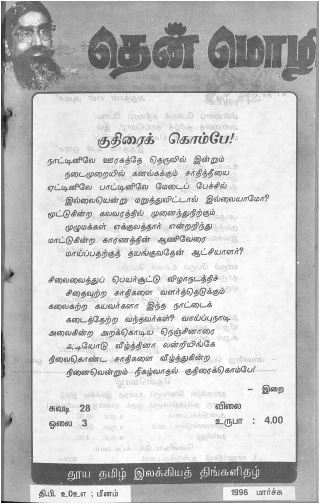 தென் மொழி
குதிரைக் கொம்பே!
நாட்டினிலே ஊரகத்தே தெருவில் இன்றும்
நடைமுறையில் கனலக்கும் சாதித்தீயை
ஏட்டினிலே பாட்டினிலே மேடைப் பேச்சில்
இல்லையென்று மறுத்துவிட்டால் இல்லையாமோ?
மூட்டுகின்ற கலவரத்தில் முனைந்துநிற்கும்
முழுமக்கள் எக்குலத்தார் என்றறிந்து
மாட்டுகின்ற காரணத்தின் ஆணிவேரை
மாய்ப்பதற்குத் தயங்குவதேன் ஆட்சியாளர்?
சிலைவைத்துப் பெயர்சூட்டு விழாநடத்திச்
சிதைவுற்ற சாதிகளை வளர்த்தெடுக்கும்
கலைகற்ற கயவர்களா இந்த நாட்டைக்
கடைத்தேற்ற வந்தவர்கள்? வாய்ப்புநாடி
அலைகின்ற அறக்கொடிய நெஞ்சினாரை
அடியோடு வீழ்த்தினா லன்றியிங்கே
நிலைகொண்ட சாதிகளை வீழ்த்துகின்ற
நினைவென்றும் நிகழ்வாதல் குதிரைக்கொம்பே!
– இறை
சுவடி 28 விலை
ஓலை 3 உருபா : 4.00
தூய தமிழ் இலக்கியத் திங்களிதழ்
தி.பி. ௨௦௨௭ ; மீனம் 1996 மார்ச்சு